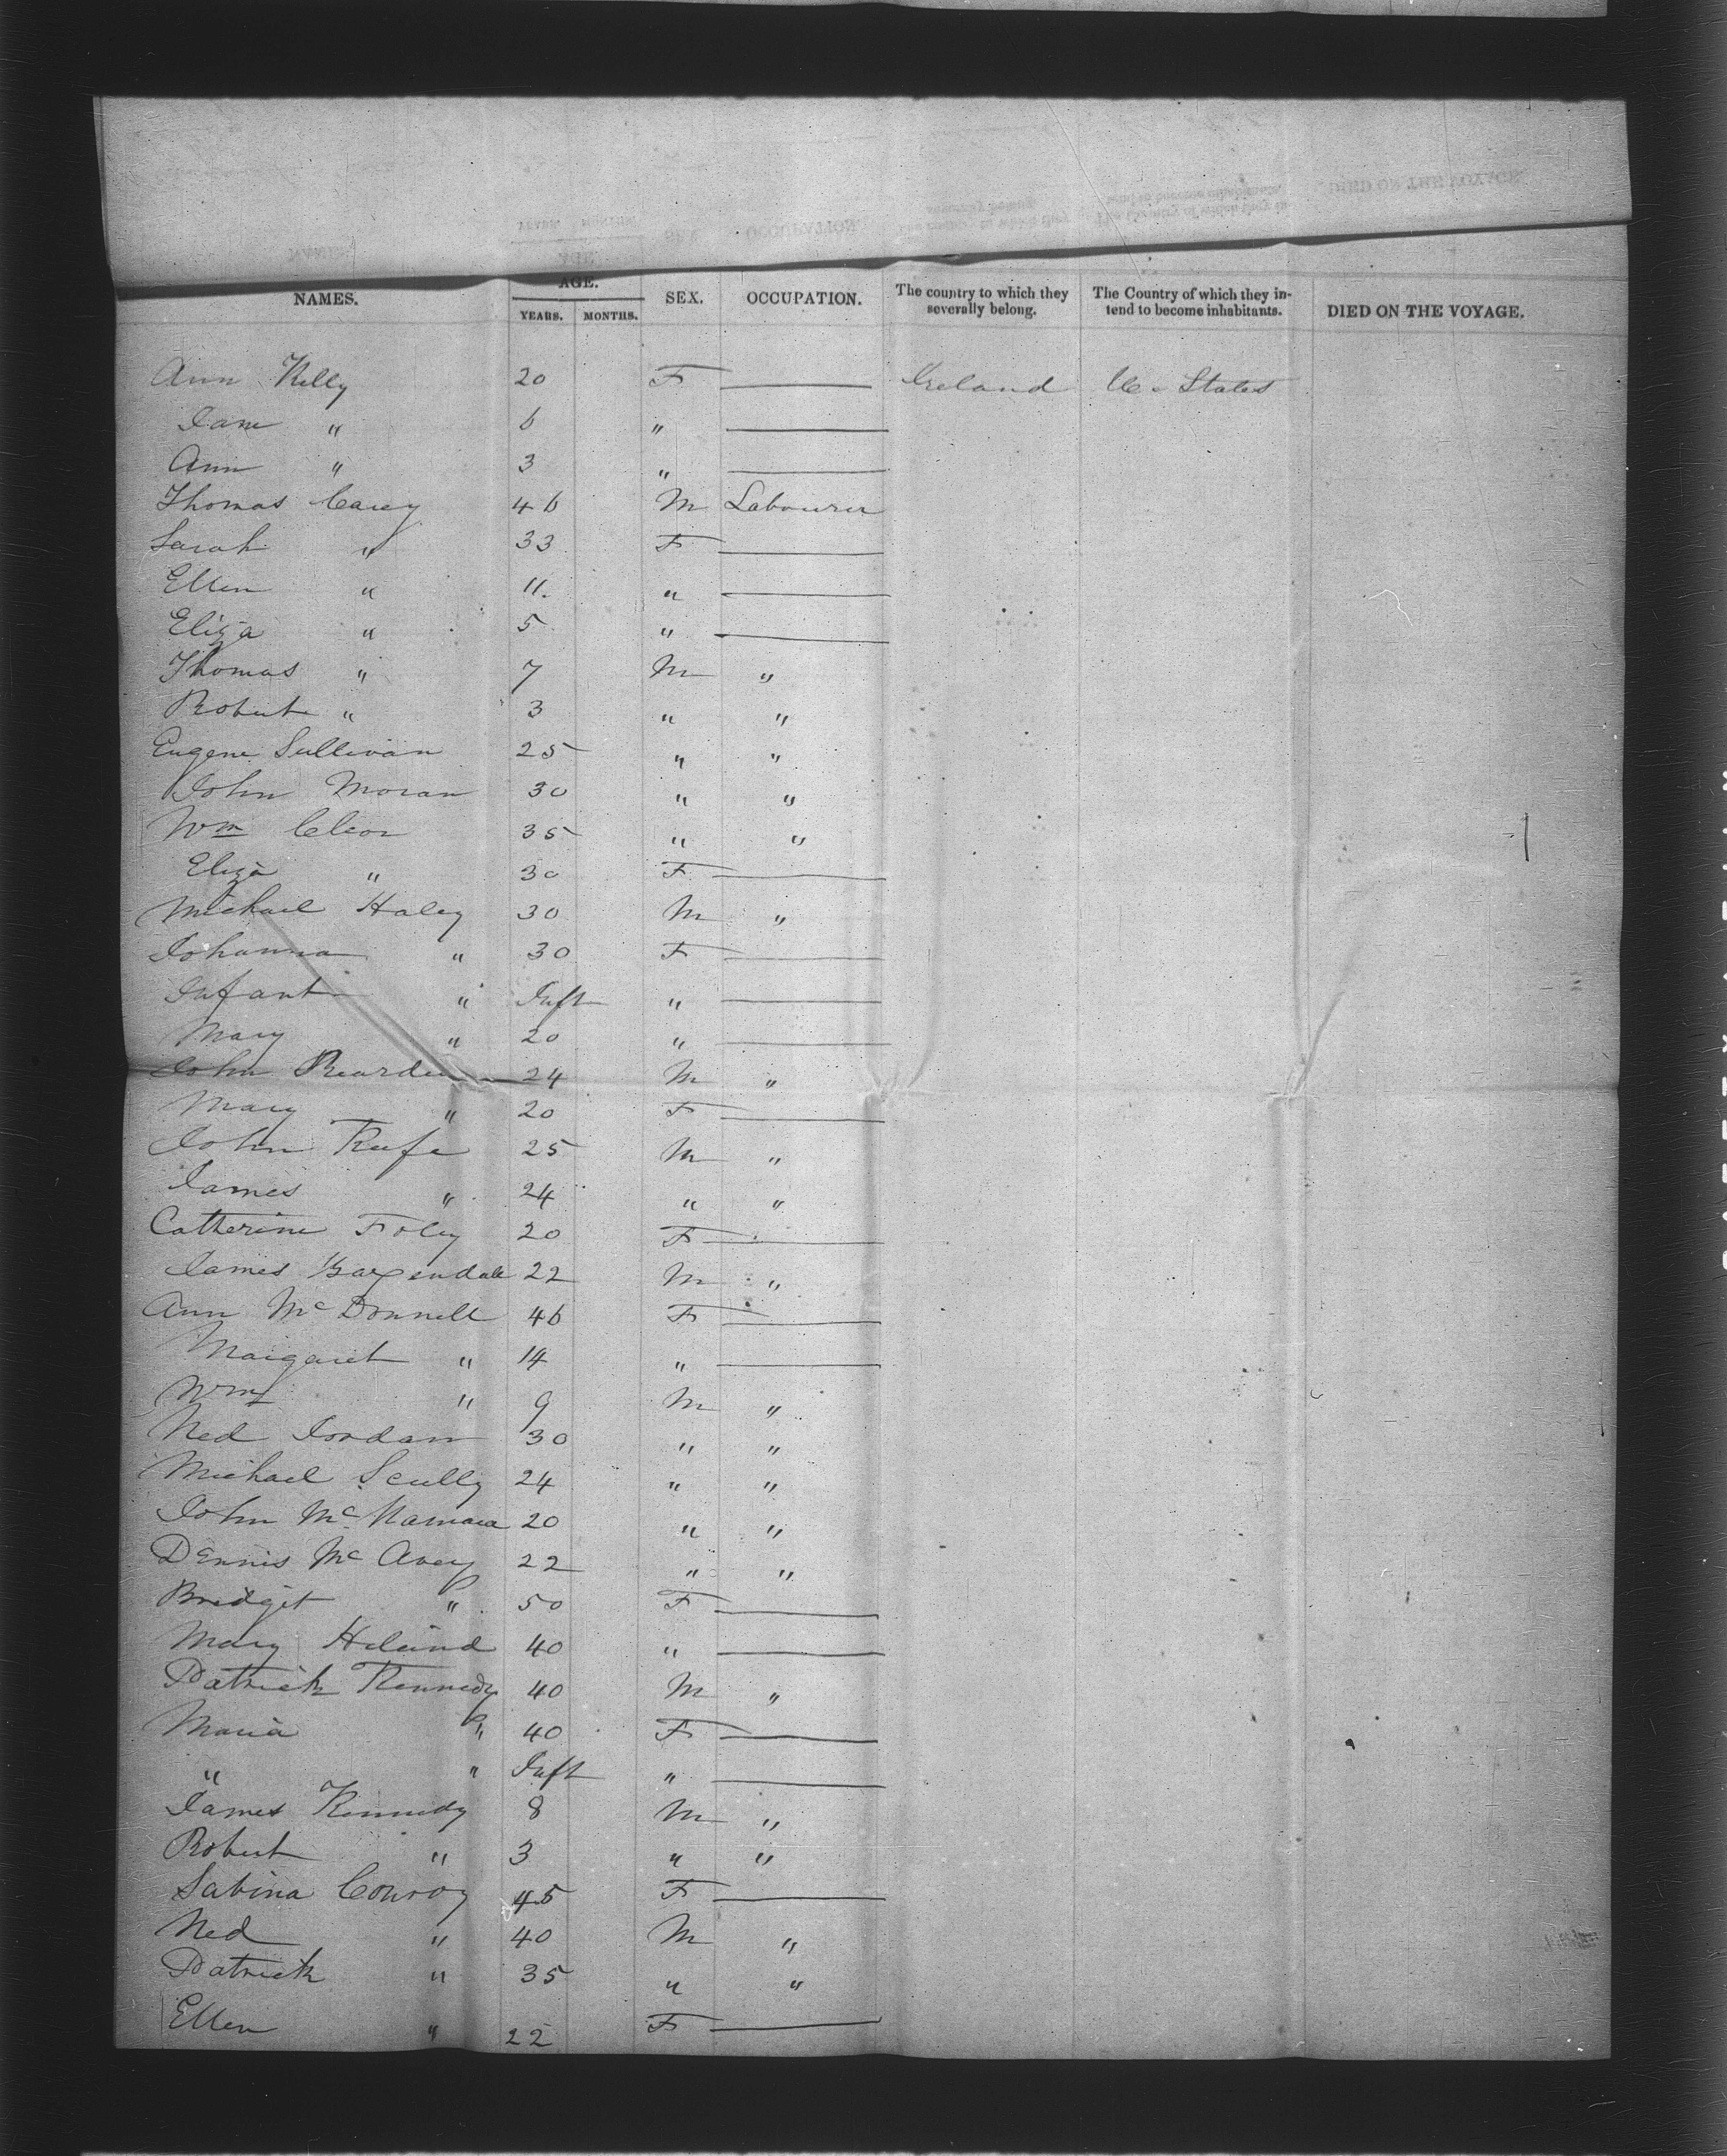 NAMES. AGE. YEARS. MONTHS. SEX. OCCUPATION. The country to which they severally belong. The Country of which they intend to become inhabitants. DIED ON THE VOYAGE.
Ann Kelly 20 F — Ireland U. States
Jane " 6 " —
Ann " 3 " —
Thomas Carey 46 M Labourer
Sarah " 33 F —
Ellen " 11. " —
Eliza " 5 " —
Thomas " 7 M "
Robert " 3 " "
Eugene Sullivan 25 " "
John Moran 30 " "
Wm 35 " "
Eliza " 30 F —
Michael Haley 30 M "
Johanna " 30 F —
Infant " Inft " —
Mary " 20 " —
John Rearden 24 M "
Mary " 20 F —
John Keefe 25 M "
James " 24 " "
Catherine Foley 20 F —
James Baxendale 22 M "
Ann McDonnell 46 F —
Margaret " 14 " —
Wm " 9 M "
Ned Jordan 30 " "
Michael Scully 24 " "
John McNamara 20 " "
Dennis McAvey 22 " "
Bridget " 50 F —
Mary 40 " —
Patrick Kennedy 40 M "
Maria " 40 F —
" " Inft " —
James Kennedy 8 M "
Robert " 3 " "
Sabina Conroy 45 F —
Ned " 40 M "
Patrick " 35 " "
Ellen " 22 F —